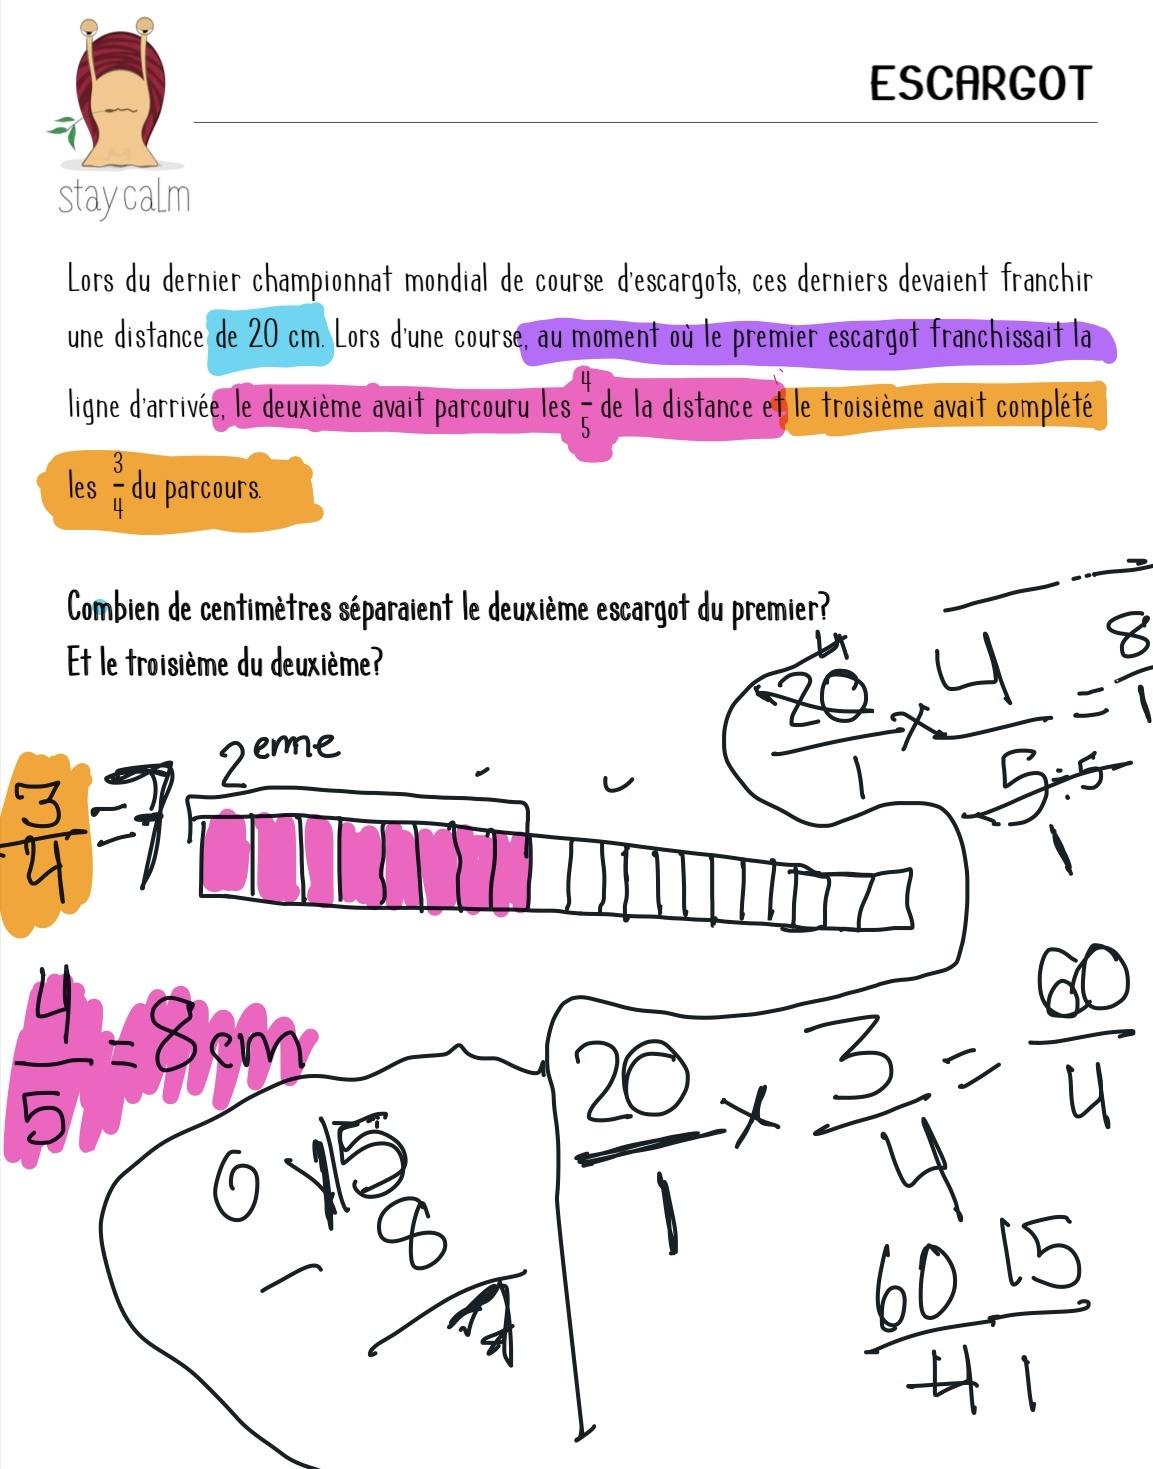 ESCARGOT
stay calm
Lors du dernier championnat mondial de course d'escargots, ces derniers devaient franchir
une distance de 20 cm. Lors d'une course, au moment où le premier escargot franchissait la
ligne d'arrivée, le deuxième avait parcouru les 4/5 de la distance et le troisième avait complété
les 3/4 du parcours.
Combien de centimètres séparaient le deuxième escargot du premier?
Et le troisième du deuxième?
4
20/1 × 4/5 = 8/1
÷5
1
2eme
3/4 = 7
4/5 = 8cm
20/1 × 3/4 = 60/4
0 15
- 8
7
60 15
4 1